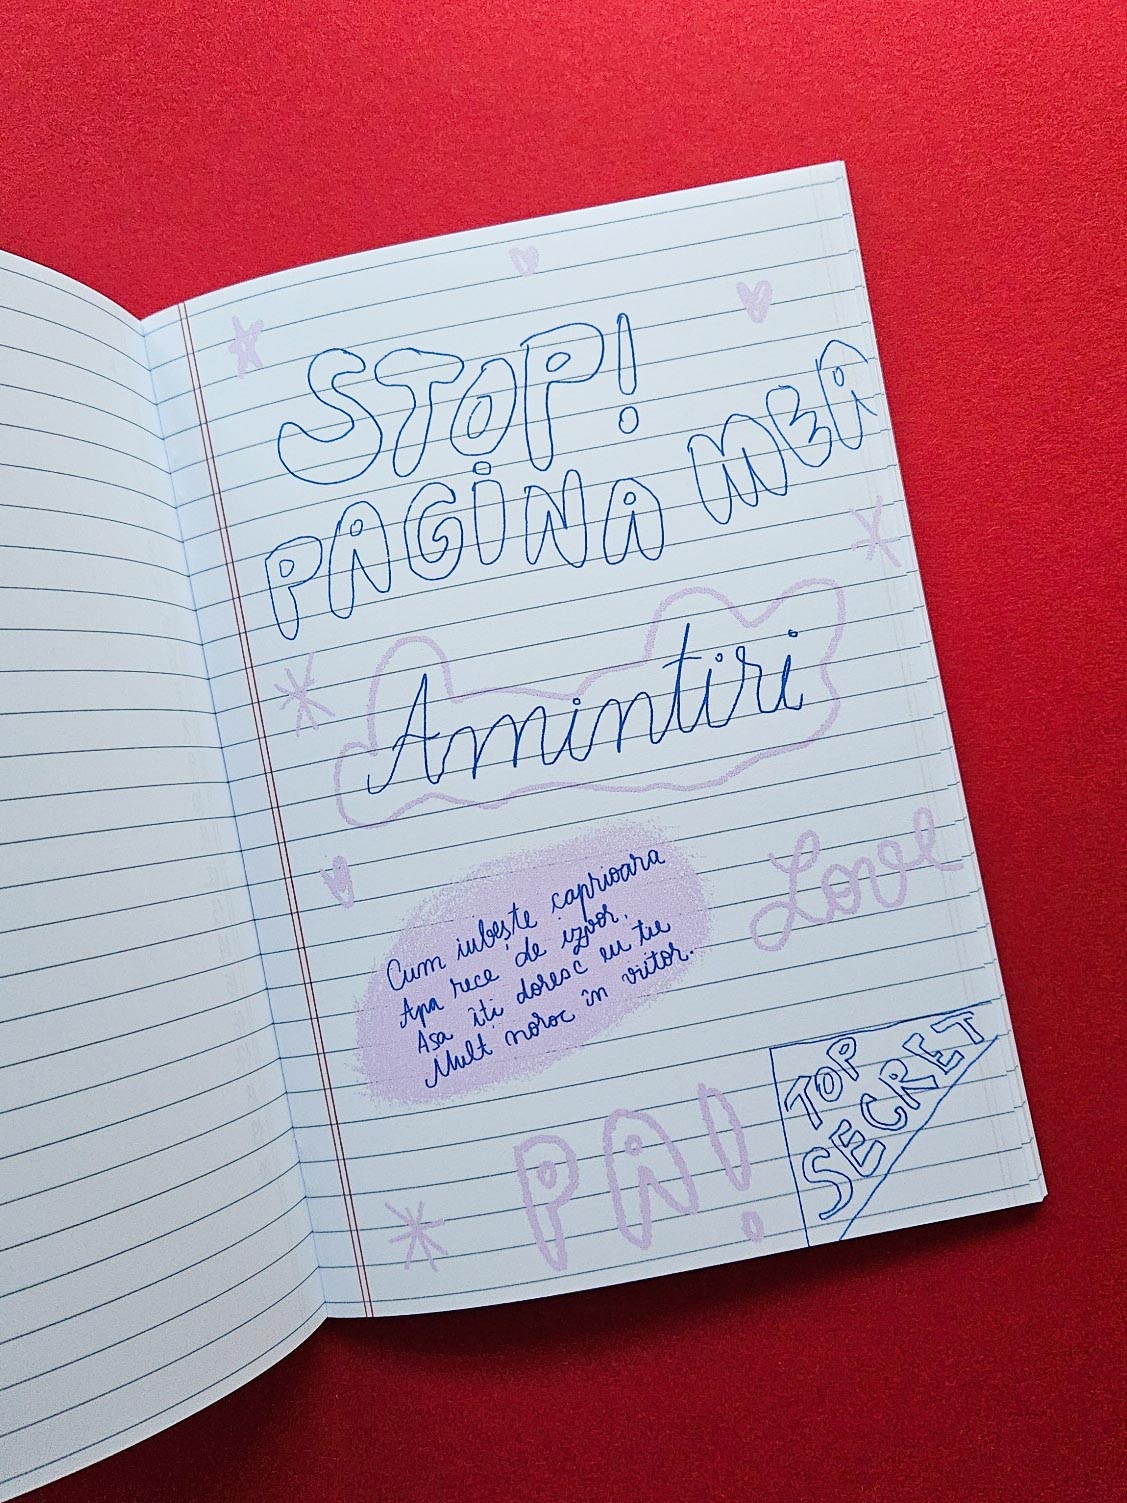 STOP!
PAGINA MEA
Amintiri
Love
Cum iubește caprioara
Apa rece de izvor,
Asa iti doresc eu tie
Mult noroc în viitor.
TOP
SECRET
PA!